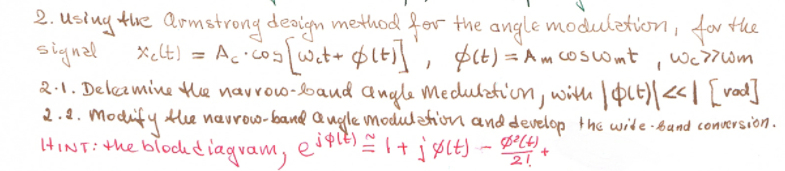 2. using the Armstrong design method for the angle modulation, for the
signal xc(t) = Ac·cos[ωct + ϕ(t)], ϕ(t) = Am cosωmt, ωc>>ωm
2.1. Determine the narrow-band angle Modulation, with |ϕ(t)|<<1 [rad]
2.2. Modify the narrow-band angle modulation and develop the wide-band conversion.
HINT: the block diagram, e^jϕ(t) ≅ 1 + jϕ(t) - ϕ²(t)/2! +